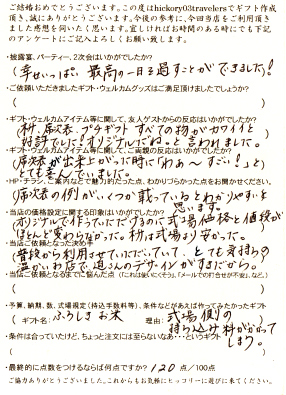 ご結婚おめでとうございます。この度はhickory03travelersでギフト作成
頂き、誠にありがとうございます。今後の参考に、今回当店をご利用頂き
ました感想を伺いたく思います。宜しければお時間のある時にでも下記
のアンケートにご記入よろしくお願い致します。
・披露宴、パーティー、2次会はいかがでしたか?
(幸せいっぱい、最高の一日を過すことができました!)
・ご依頼いただきましたギフト・ウェルカムグッズはご満足頂けましたでしょうか?
( )
・ギフト・ウェルカムアイテム等に関して、友人ゲストからの反応はいかがでしたか?
(枡、席次表、プチギフトすべての物がカワイイと
好評でした!オリジナルだね。と言われました。)
・ギフト・ウェルカムアイテム等に関して、ご両親の反応はいかがでしたか?
(席次表が出来上がった時に「わぁ〜すごい!」と)
とても喜んでいました。
・HP・チラシ、ご案内などで魅力的だった点、わかりづらかった点をお聞かせください。
(席次表の例がいくつか載っているとわかりやすいと
思います。)
・当店の価格設定に関する印象はいかがでしたか?
(オリジナルで作っていただけるのに式場価格と値段が
ほとんど変わらなかった。枡は式場より安かった。)
・当店ご依頼となった決め手
(普段から利用させていただいていて、とても気持ち
温かいお店で、迫さんのデザインがすきだから。)
・当店ご依頼となるまでに悩んだ点 (「これは強いにくそう」、「メールでの打合せが不安」、など)
( )
・予算、納期、数、式場規定(持込手数料等)、条件などがあえば作ってみたかったギフト
(ギフト名:ふろしき お米 理由:式場側の
持ち込み料がかかって
しまう。)
・条件は合っていたけど、ちょっと注文には至らないなあ・・・というギフト
( )
・最終的に点数をつけるならば何点ですか? 120 点/100点
ご協力ありがとうございました。これからもお気軽にヒッコリーに遊びに来てください。